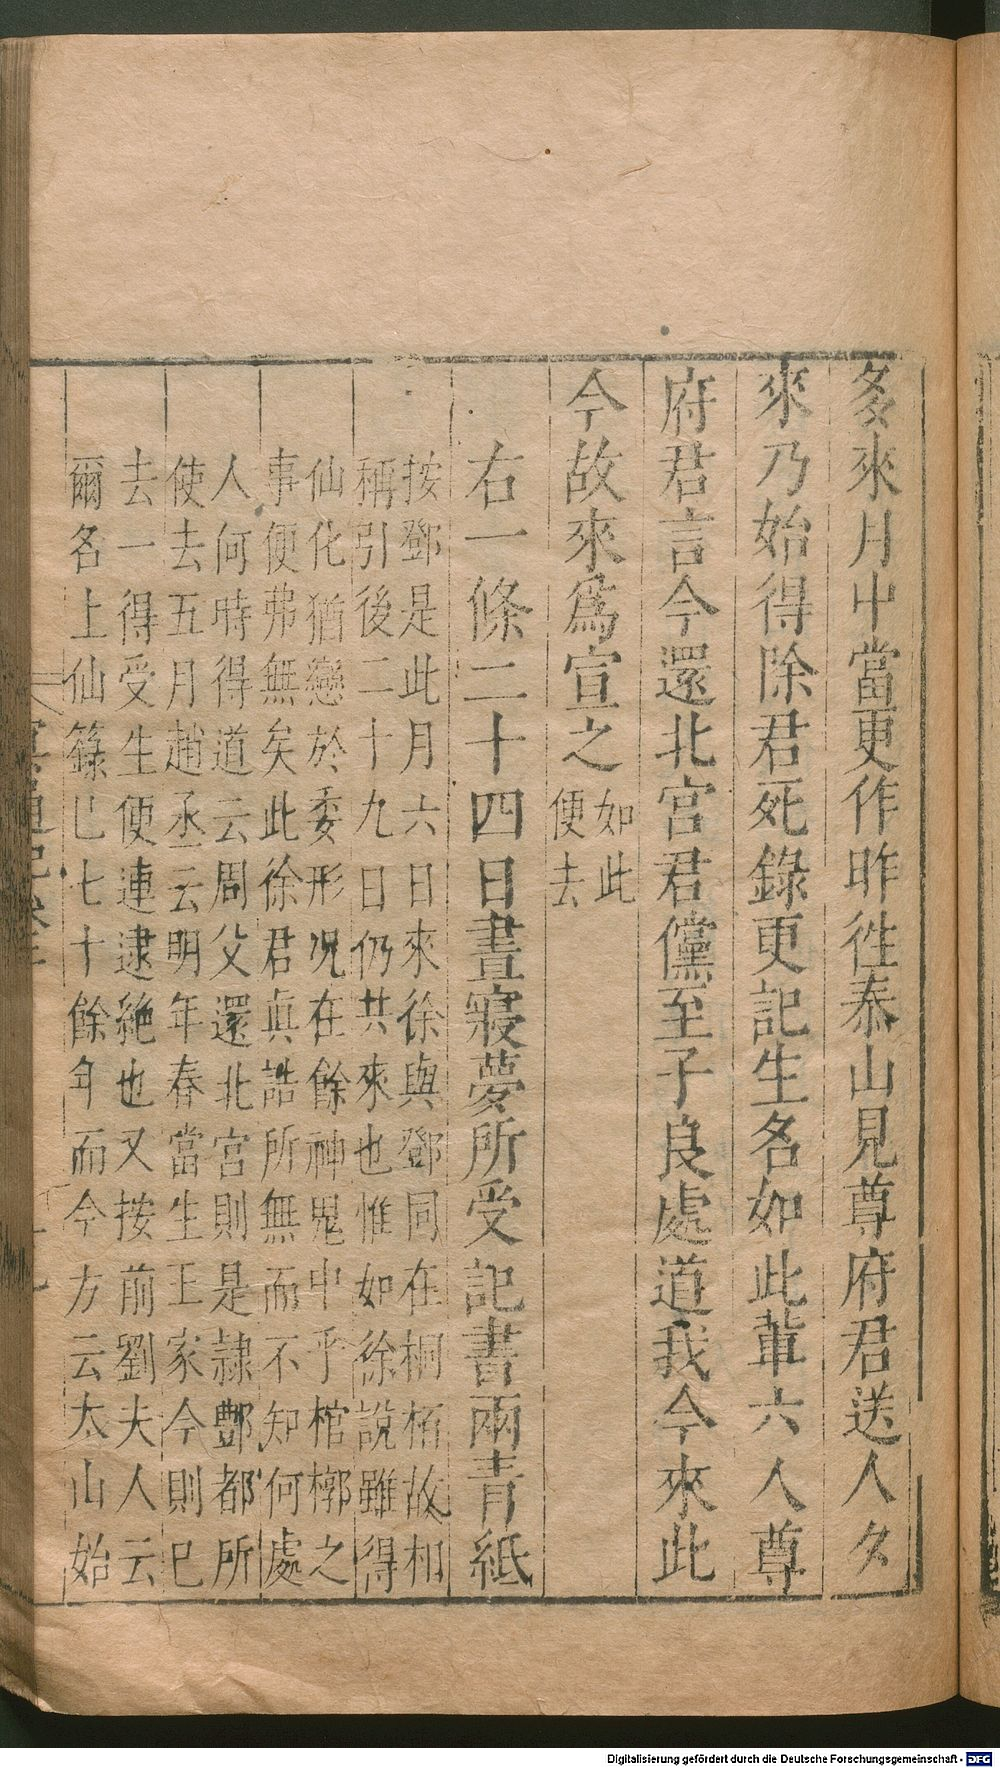 多來月中當更作昨徃泰山見尊府君送人多
來乃始得除君死錄更記生名如此軰六人尊
府君言今還北宮君儻至子良處道我今來此
今故來爲宣之如此
便去
右一條二十四日晝寢夢所受記書兩青紙
按鄧是此月六日來徐與鄧同在桐栢故相
稱引後二十九日仍共來也惟如徐說雖得
仙化猶戀於委形况在餘神鬼中乎棺槨之
事便弗無矣此徐君眞誥所無而不知何處
人何時得道云周父還北宮則是隷酆都所
使去五月趙丞云明年春當生王家今則巳
去一得受生便連逮絶也又按前劉夫人云
爾名上仙籙巳七十餘年而今方云太山始
冥通記卷三
Digitalisierung gefördert durch die Deutsche Forschungsgemeinschaft - DFG